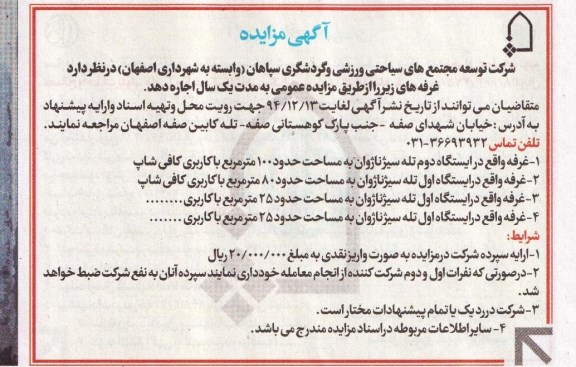 آگهی مزایده
شرکت توسعه مجتمع های سیاحتی ورزشی وگردشگری سپاهان (وابسته به شهرداری اصفهان) درنظر دارد
غرفه های زیر را از طریق مزایده عمومی به مدت یک سال اجاره دهد.
متقاضیان می توانند از تاریخ نشر آگهی لغایت ۹۴/۱۲/۱۳ جهت رویت محل وتهیه اسناد وارایه پیشنهاد
به آدرس :خیابان شهدای صفه -جنب پارک کوهستانی صفه- تله کابین صفه اصفهان مراجعه نمایند.
تلفن تماس ۳۶۶۹۳۹۳۲-۰۳۱
۱-غرفه واقع در ایستگاه دوم تله سیژ ناژوان به مساحت حدود ۱۰۰ مترمربع با کاربری کافی شاپ
۲-غرفه واقع در ایستگاه اول تله سیژ ناژوان به مساحت حدود ۸۰ مترمربع با کاربری کافی شاپ
۳-غرفه واقع درایستگاه اول تله سیژ ناژوان به مساحت حدود ۲۵ مترمربع با کاربری........
۴-غرفه واقع درایستگاه اول تله سیژ ناژوان به مساحت حدود ۲۵ مترمربع با کاربری .......
شرایط:
۱-ارایه سپرده شرکت درمزایده به صورت واریز نقدی به مبلغ ۲۰/۰۰۰/۰۰۰ ریال
۲-درصورتی که نفرات اول و دوم شرکت کننده از انجام معامله خودداری نمایند سپرده آنان به نفع شرکت ضبط خواهد
شد.
۳-شرکت دررد یک یا تمام پیشنهادات مختار است.
۴- سایر اطلاعات مربوطه در اسناد مزایده مندرج می باشد.